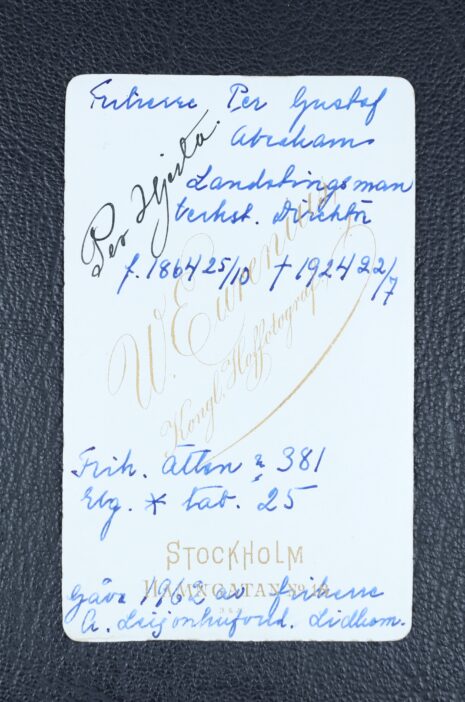 Friherre Per Gustaf
Abraham
Per Hjerta.
Landstingsman
Verkst. Direktör
f. 1864 25/10 † 1924 22/7
W. Eurenius
Kongl. Hoffotograf
Frih. ätten № 381
Elg. * tab. 25
STOCKHOLM
HAMNGATAN No 19
Gåva 1962 av friherre
A. Leijonhufvud. Lidhem.